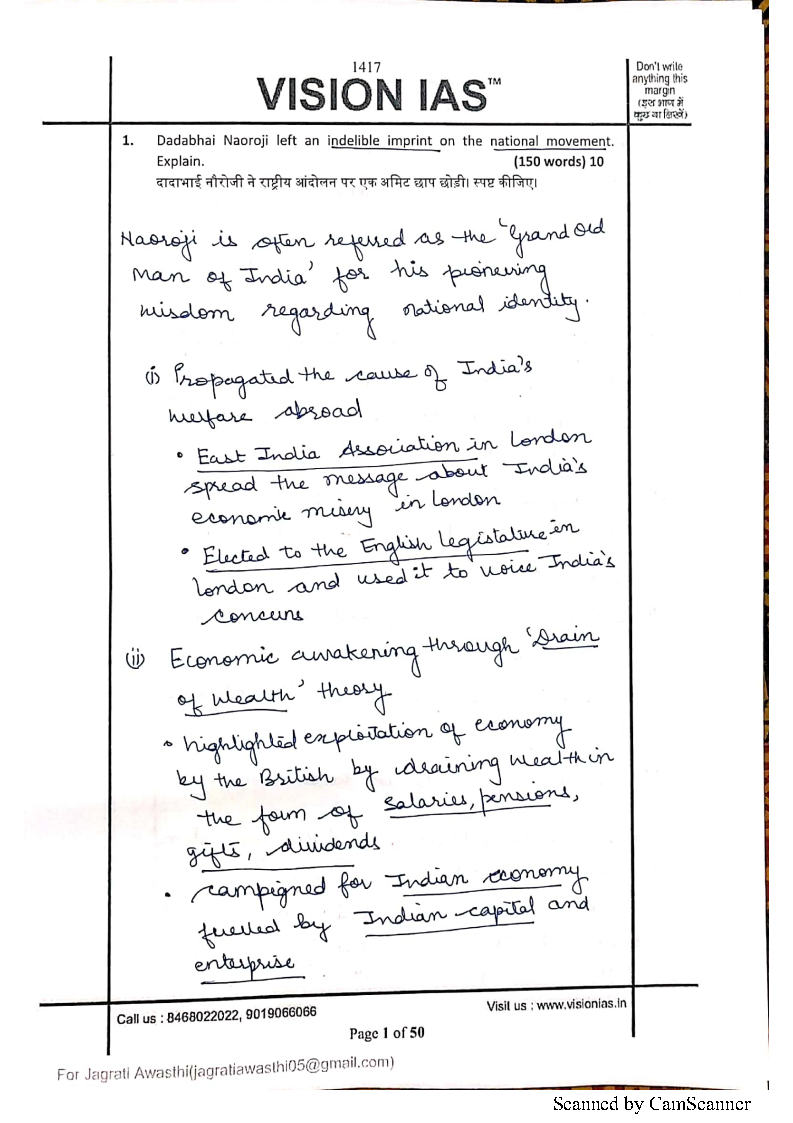 1417
VISION IAS™
Don't write
anything this
margin
(इस भाग में
कुछ ना लिखें)
1. Dadabhai Naoroji left an indelible imprint on the national movement.
Explain. (150 words) 10
दादाभाई नौरोजी ने राष्ट्रीय आंदोलन पर एक अमिट छाप छोड़ी। स्पष्ट कीजिए।
Naoroji is often referred as the 'Grand Old
Man of India' for his pioneering
wisdom regarding national identity.
(i) Propagated the cause of India's
welfare abroad
• East India Association in London
spread the message about India's
economic misery in London
• Elected to the English legistature in
London and used it to voice India's
concerns
(ii) Economic awakening through 'Drain
of Wealth' theory
• highlighted exploitation of economy
by the British by draining wealth in
the form of salaries, pensions,
gifts, dividends.
• campigned for Indian economy
fuelled by Indian capital and
enterprise
Call us : 8468022022, 9019066066
Visit us : www.visionias.in
Page 1 of 50
For Jagrati Awasthi(jagratiawasthi05@gmail.com)
1
Scanned by CamScanner